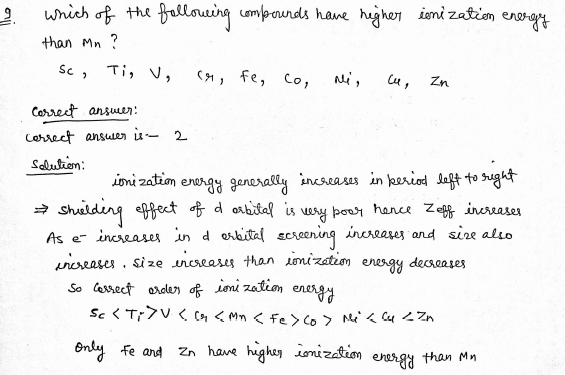 9. Which of the following compounds have higher ionization energy
than Mn ?
Sc , Ti , V , Cr , Fe , Co , Ni , Cu , Zn
Correct answer:
Correct answer is :- 2
Solution:
ionization energy generally increases in period left to right
⇒ Shielding effect of d orbital is very poor hence Zeff increases
As e⁻ increases in d orbital screening increases and size also
increases . Size increases than ionization energy decreases
So correct order of ionization energy
Sc < Ti > V < Cr < Mn < Fe > Co > Ni < Cu < Zn
Only Fe and Zn have higher ionization energy than Mn